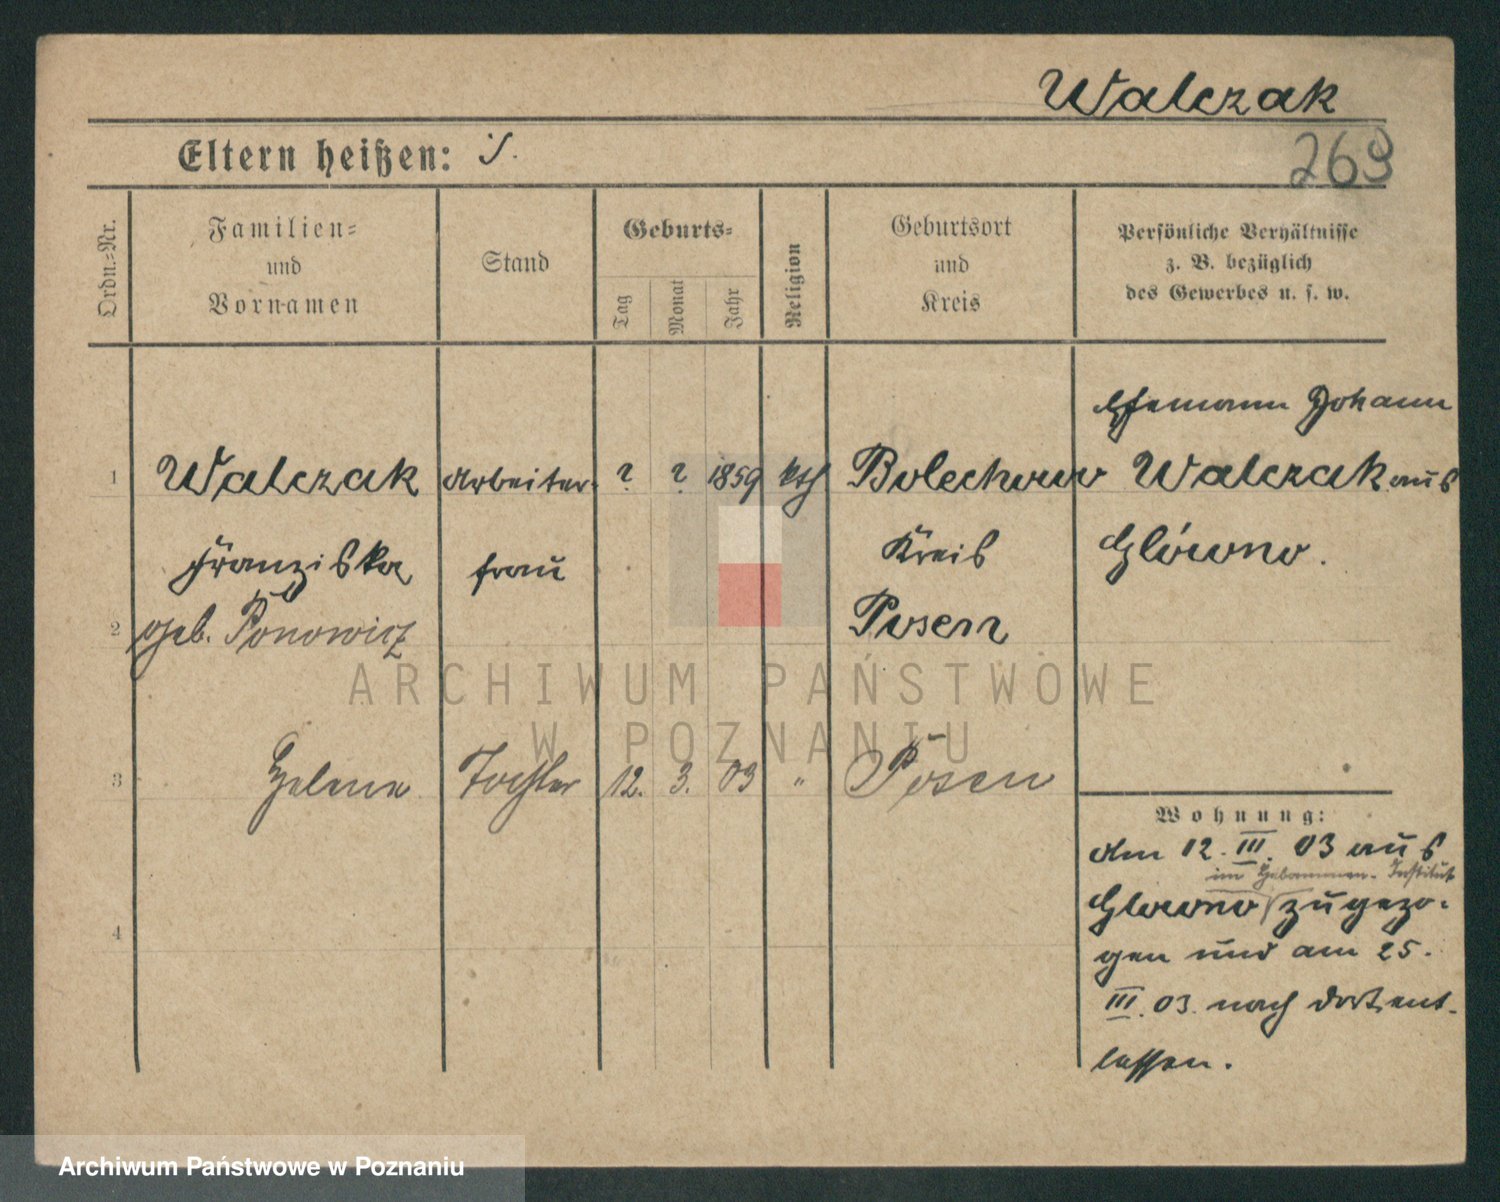 Walczak
Eltern heißen: ./.
269
Ordn.-Nr.
Familien-
und
Vornamen
Stand
Geburts-
Tag
Monat
Jahr
Religion
Geburtsort
und
Kreis
Persönliche Verhältnisse
z. B. bezüglich
des Gewerbes u. s. w.
Ehemann Johann
1 Walczak Arbeiter- ? ? 1859 kth Bolechowo Walczak aus
Franziska frau Kreis Glówno.
2 geb. Ponowicz Posen
ARCHIWUM PAŃSTWOWE
W POZNANIU
3 Helene Tochter 12. 3. 03 " Posen
Wohnung:
Am 12. III. 03 aus
im Hebammen-Institut
Glowno zugezo-
4
gen und am 25.
III. 03. nach dort ent-
lassen.
Archiwum Państwowe w Poznaniu